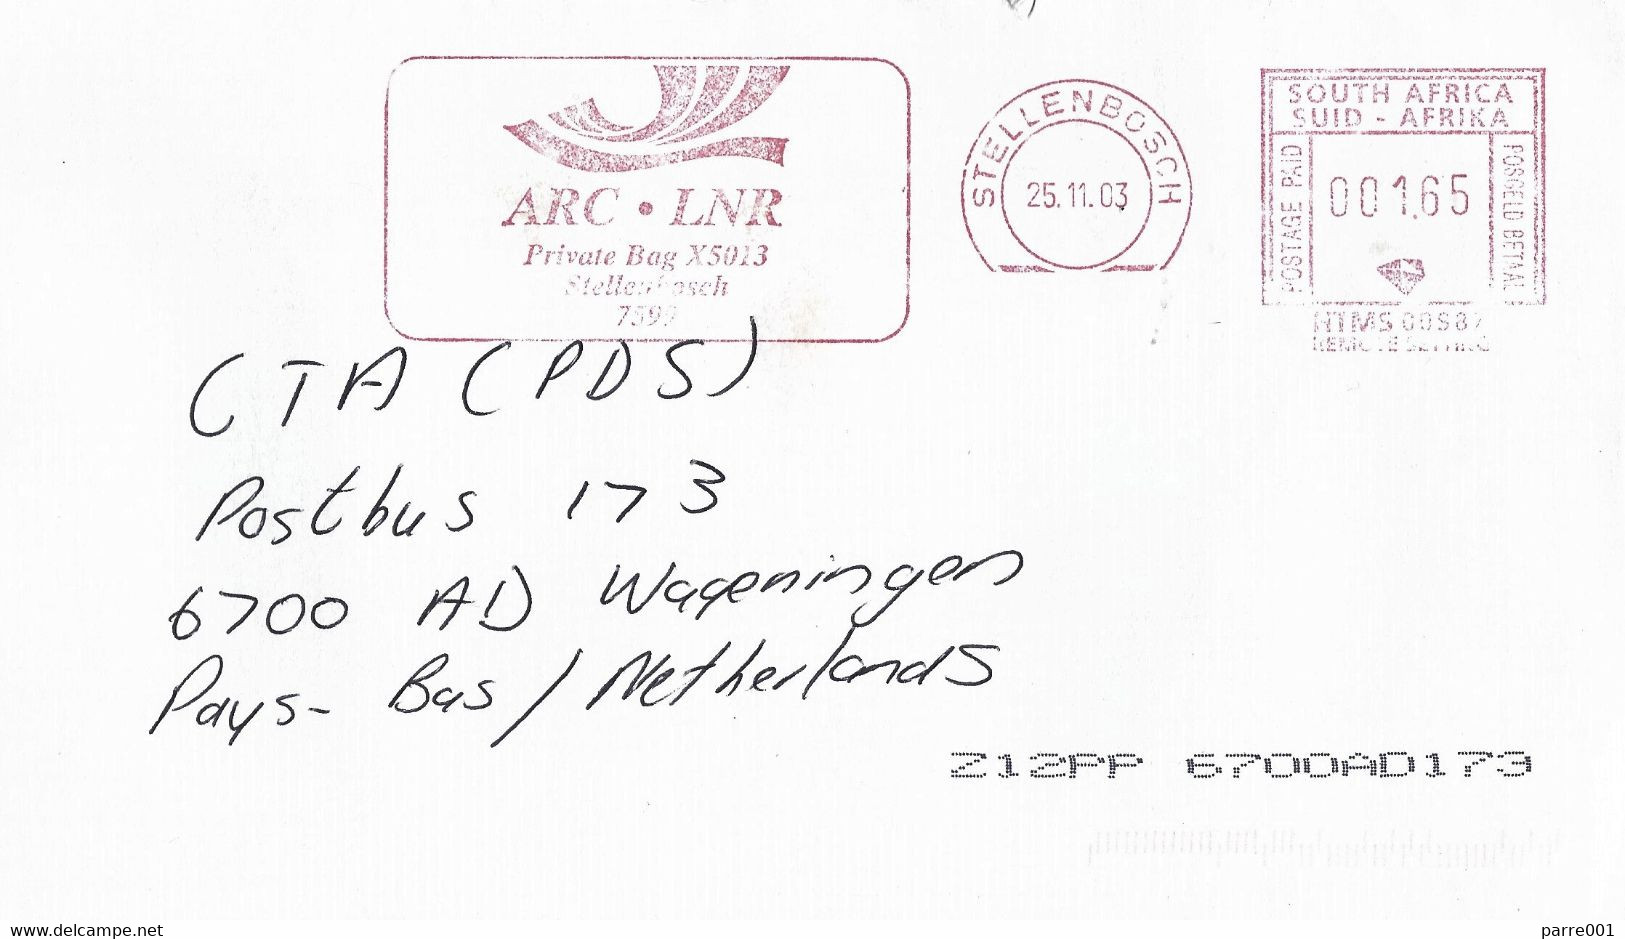 ARC • LNR
Private Bag X5013
Stellenbosch
7599
STELLENBOSCH
25.11.03
SOUTH AFRICA
SUID - AFRIKA
POSTAGE PAID
001.65
POSGELD BETAAL
REMOTE SETTING
CTA (PDS)
Postbus 173
6700 AD Wageningen
Pays-Bas / Netherlands
212PP 6700AD173
www.delcampe.net
parre001